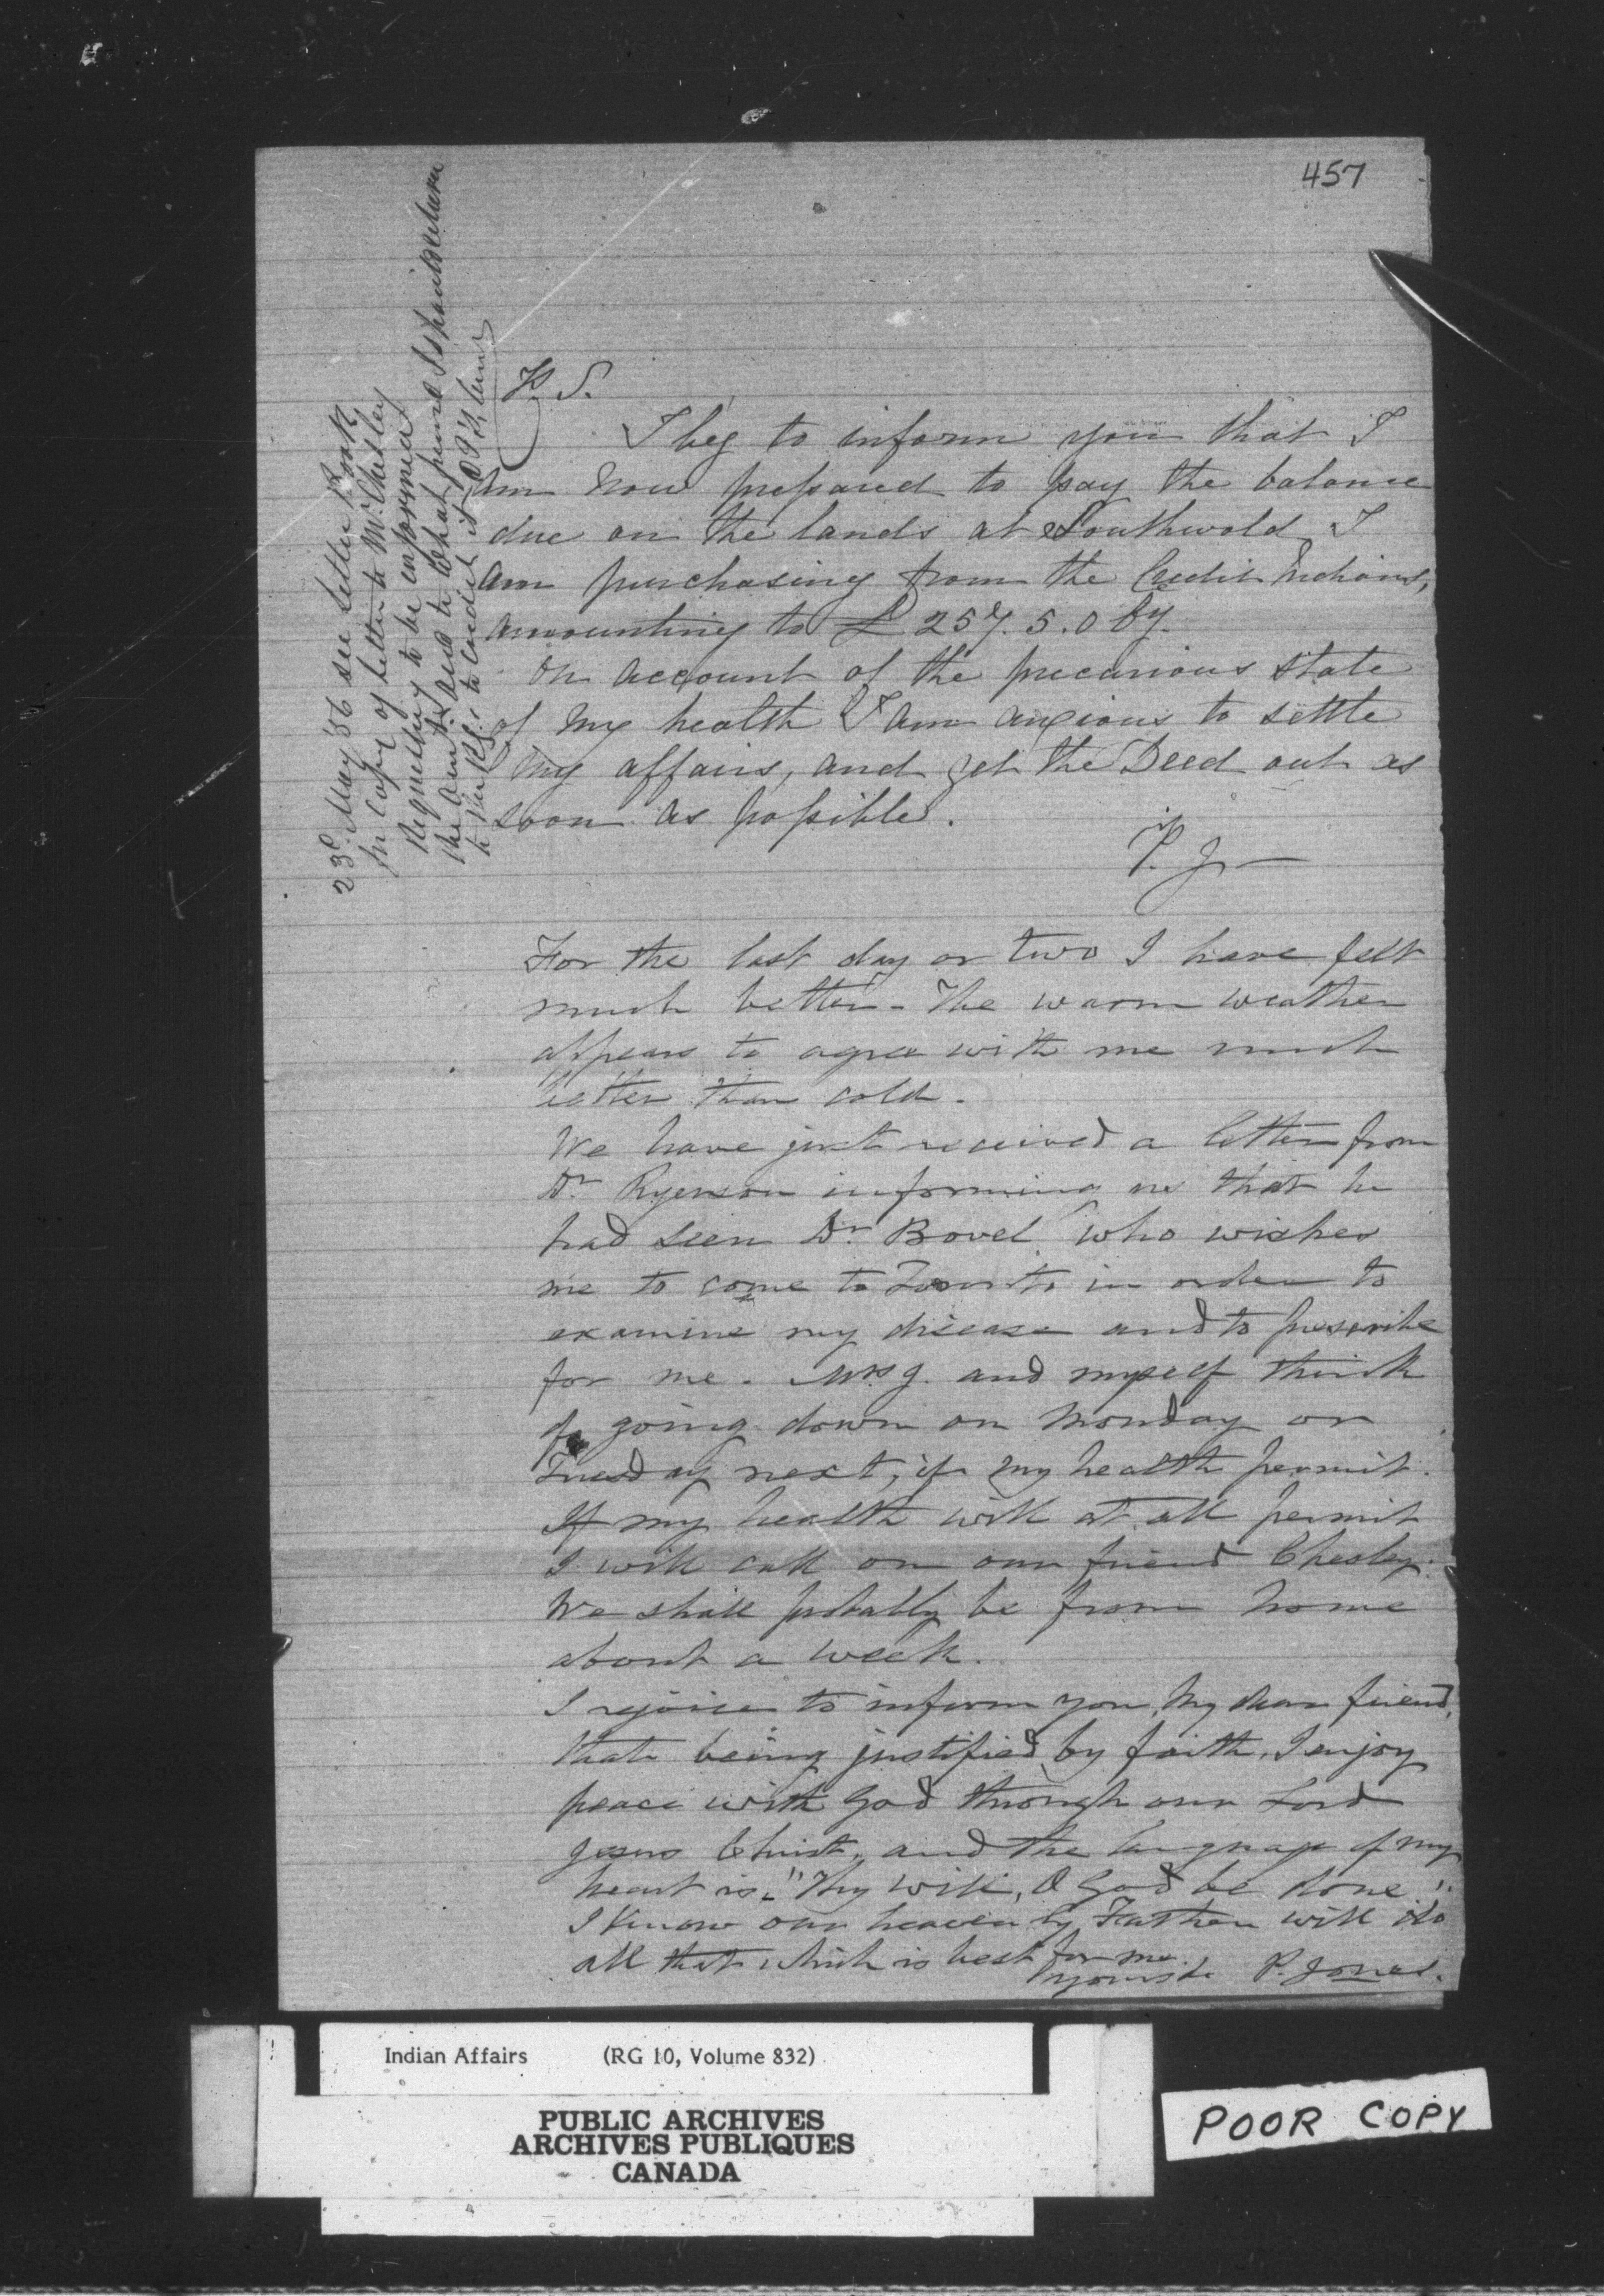 457
P. S.
I beg to inform you that I
am now prepared to pay the balance
due on the lands at Southwold I
am purchasing from the Credit Indians,
amounting to £257.5.0 Cy.
On account of the precarious state
of my health I am anxious to settle
my affairs, and get the Deed out as
soon as possible.
P. J—
For the last day or two I have felt
much better - The warm weather
appears to agree with me much
better than cold.
We have just received a letter from
Dr Ryerson informing me that he
had seen Dr Bovel who wishes
me to come to Toronto in order to
examine my disease and to prescribe
for me. Mrs J. and myself think
of going down on Monday or
Tuesday next, if my health permit.
If my health will at all permit
I will call on our friend Chesley.
We shall probably be from home
about a week.
I rejoice to inform you, my dear friend,
that being justified by faith, I enjoy
peace with God through our Lord
Jesus Christ, and the language of my
heart is, "Thy will, O God be done".
I know our heavenly Father will do
all that which is best for me.
yours &c P. Jones.
23d May '56 see Letter Book
for Copy of letter to Mr Chesley
requesting to be informed
the amt and to what fund
to credit it
Indian Affairs (RG 10, Volume 832)
PUBLIC ARCHIVES
ARCHIVES PUBLIQUES
CANADA
POOR COPY